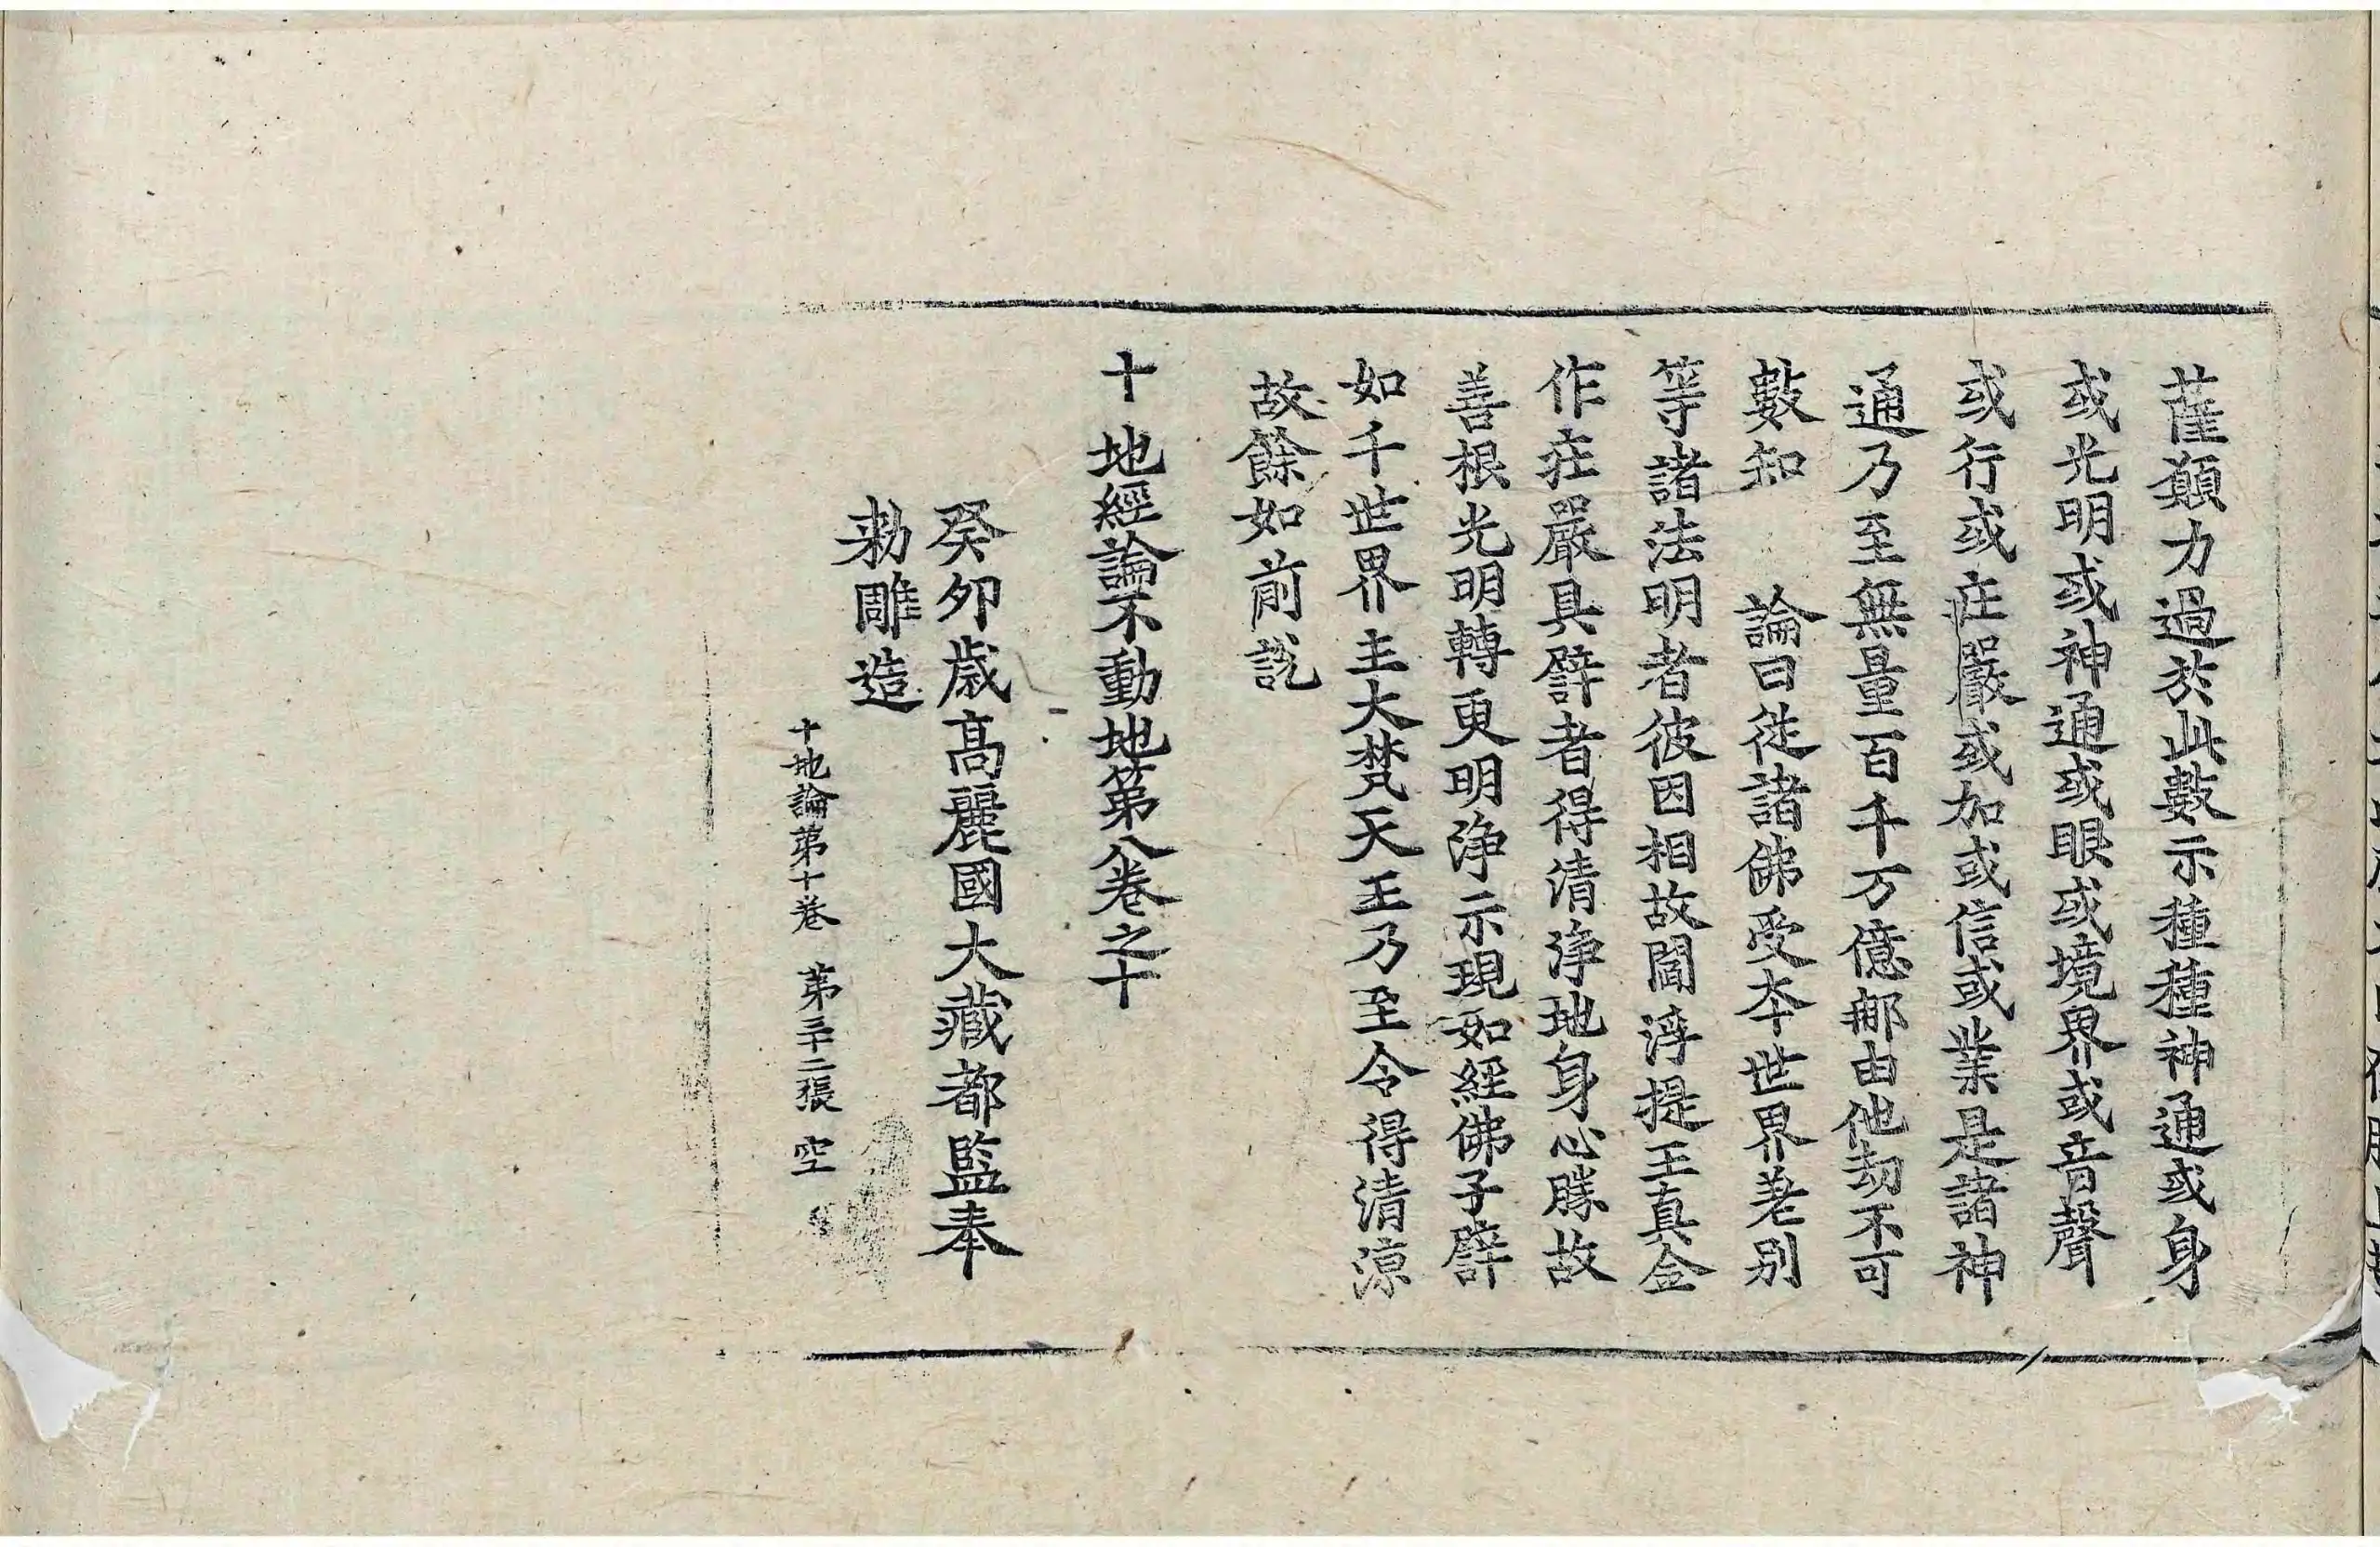 薩願力過於此數示種種神通或身
或光明或神通或眼或境界或音聲
或行或庄嚴或加或信或業是諸神
通乃至無量百千万億那由他劫不可
數知　論曰從諸佛受夲世界差別
等諸法明者彼因相故閻浮提王真金
作庄嚴具譬者得清淨地身心勝故
善根光明轉更明淨示現如經佛子譬
如千世界主大梵天王乃至令得清涼
故餘如前說
十地經論不動地第八卷之十
癸卯歲高麗國大藏都監奉
勅雕造
十地論第十卷　第三十二張　空